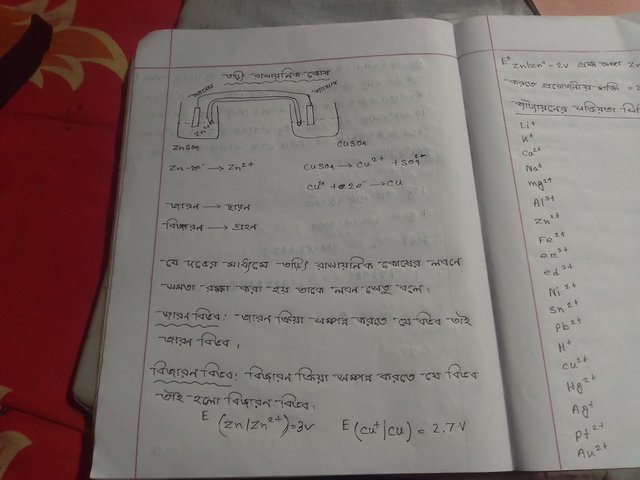 তড়িৎ রাসায়নিক কোষ
Zn²⁺
ZnSO₄
CuSO₄
Zn-2e⁻ → Zn²⁺
CuSO₄ → Cu²⁺ + SO₄²⁻
Cu²⁺ + 2e⁻ → Cu
জারন → ছাড়ন
বিজারন → গ্রহন
যে দ্রবের মাধ্যমে তড়িৎ রাসায়নিক কোষের লবনে
সমতা রক্ষা করা হয় তাকে লবন সেতু বলে।
জারন বিভব: জারন ক্রিয়া সম্পন্ন করতে যে বিভব তাই
জারন বিভব।
বিজারন বিভব: বিজারন ক্রিয়া সম্পন্ন করতে যে বিভব
তাই হলো বিজারন বিভব।
E (Zn/Zn²⁺)=3v
E (Cu⁺|Cu) = 2.7V
E° Zn/Zn⁺ = 2v
করতে প্রয়োজনীয়
Li⁺
K⁺
Ca²⁺
Na⁺
Mg²⁺
Al³⁺
Zn²⁺
Fe²⁺
cr³⁺
cd²⁺
Ni²⁺
Sn²⁺
Pb²⁺
H⁺
Cu²⁺
Hg²⁺
Ag⁺
Pt²⁺
Au²⁺